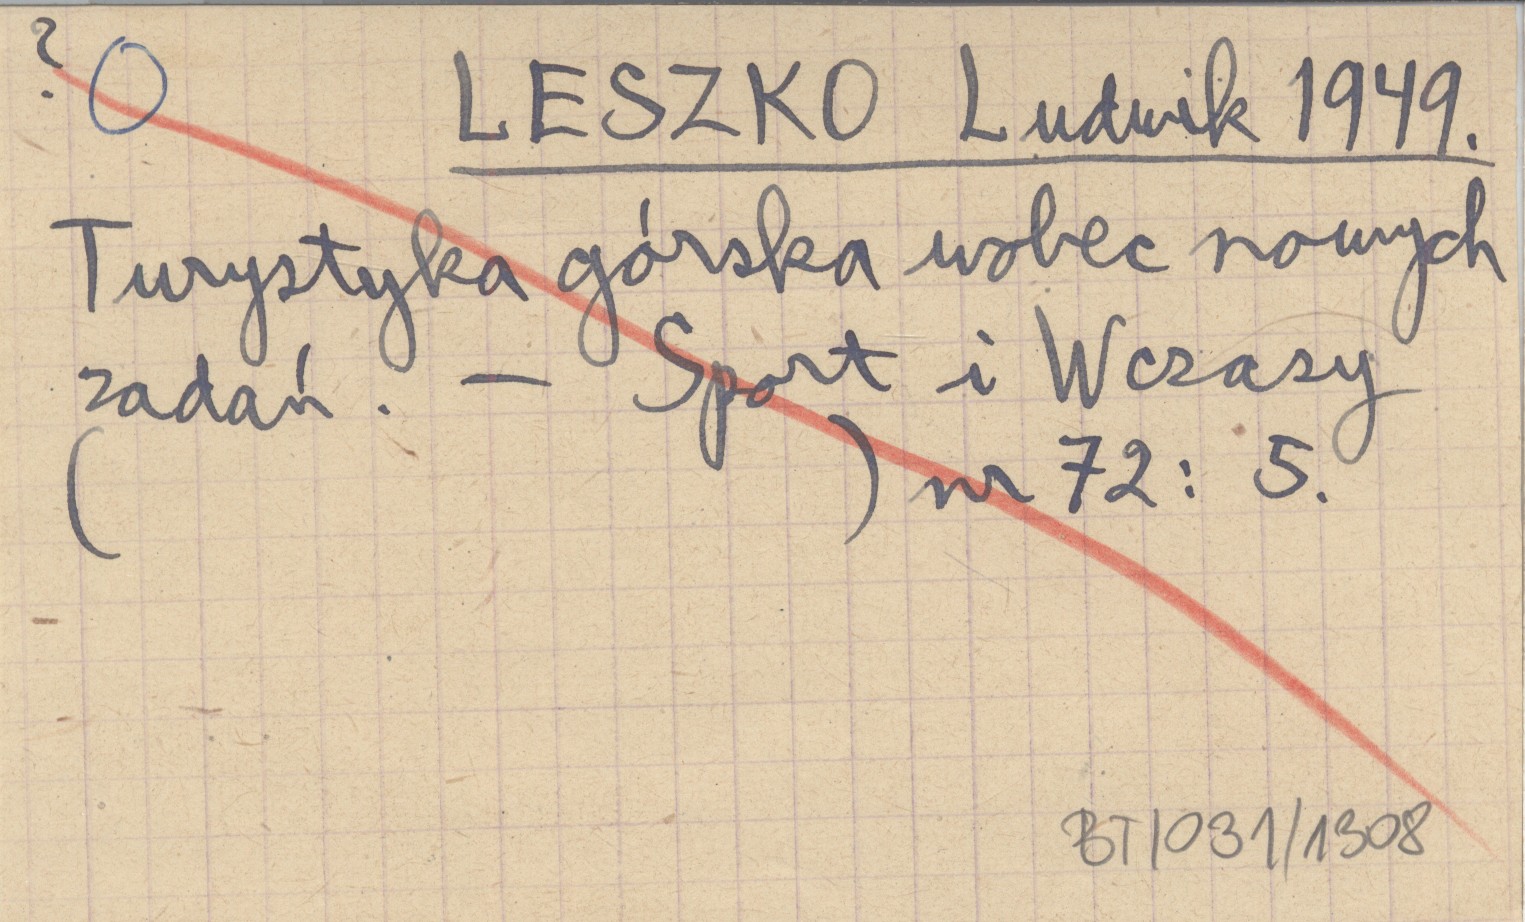 ? O LESZKO Ludwik 1949.
Turystyka górska wobec nowych
zadań. — Sport i Wczasy
( ) nr 72: 5.
BT/031/1308